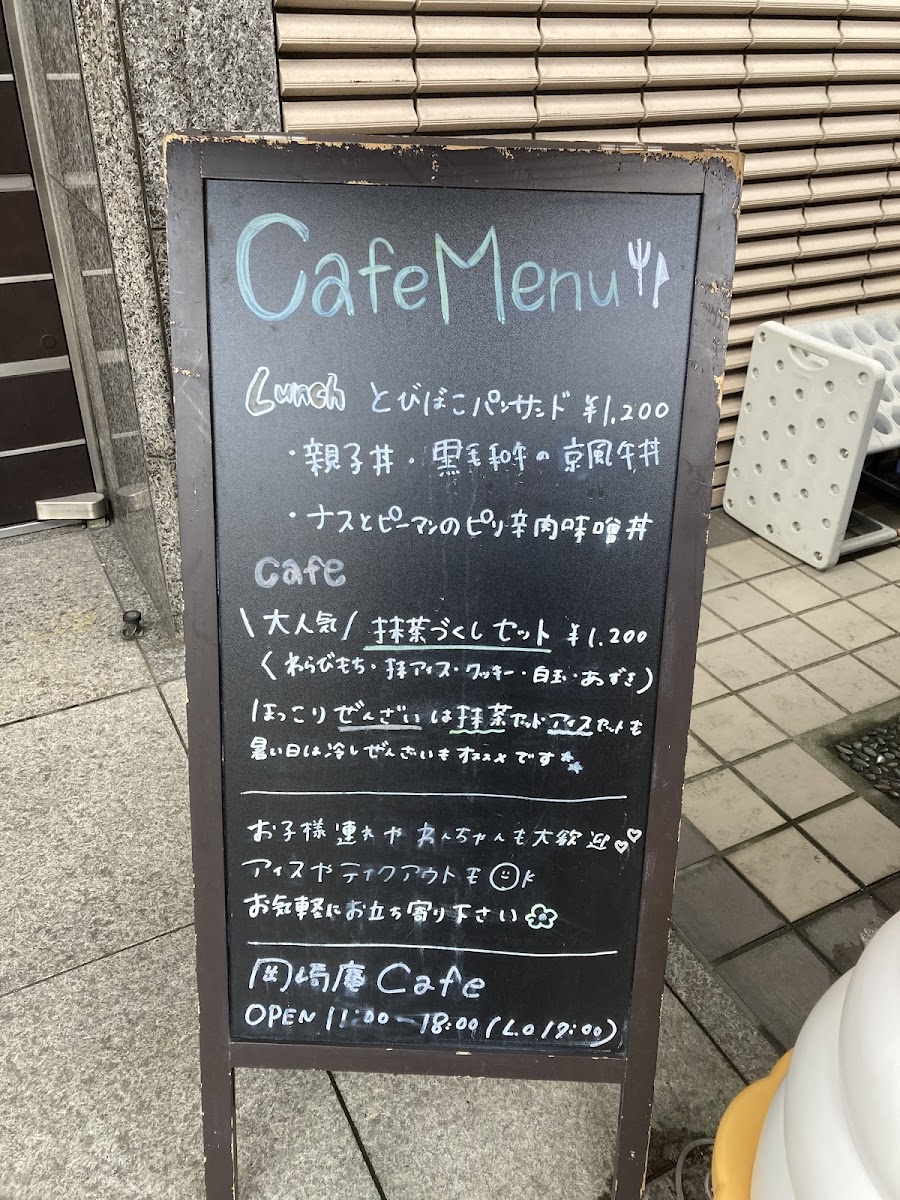 Cafe Menu
Lunch とびばこパンサンド ¥1,200
・親子丼・黒毛和牛の京風牛丼
・ナスとピーマンのピリ辛肉味噌丼
cafe
\大人気/ 抹茶づくしセット ¥1,200
(わらびもち・抹アイス・クッキー・白玉・あずき)
ほっこりぜんざいは抹茶セットアイスセットも
暑い日は冷しぜんざいもオススメです
お子様連れやわんちゃんも大歓迎♡♡
アイスやテイクアウトもOK
お気軽にお立ち寄り下さい
岡崎庵 Cafe
OPEN 11:00-18:00 (L.O 17:00)